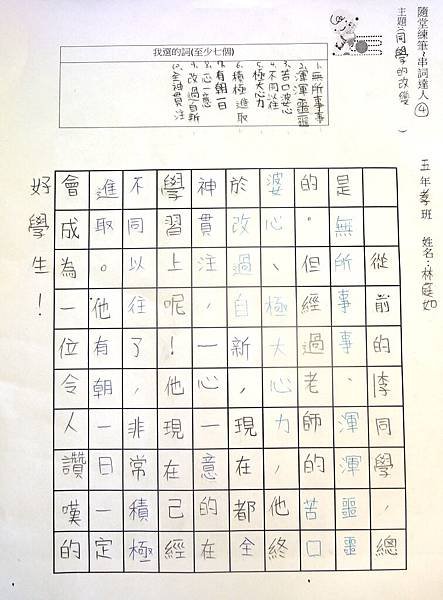 隨堂練筆~串詞達人④
主題:(同學的改變)
五年孝班 姓名:林庭如
我選的詞(至少七個)
1.無所事事
2.渾渾噩噩
3.苦口婆心
4.不同以往
5.極大心力
6.積極進取
7.有朝一日
8.一心一意
9.改過自新
10.全神貫注
從前的李同學,總
是無所事事、渾渾噩噩
的。但經過老師的苦口
婆心、極大心力,他終
於改過自新,現在都全
神貫注,一心一意的在
學習上呢!他現在己經
不同以往了,非常積極
進取。他有朝一日一定
會成為一位令人讚嘆的
好學生!